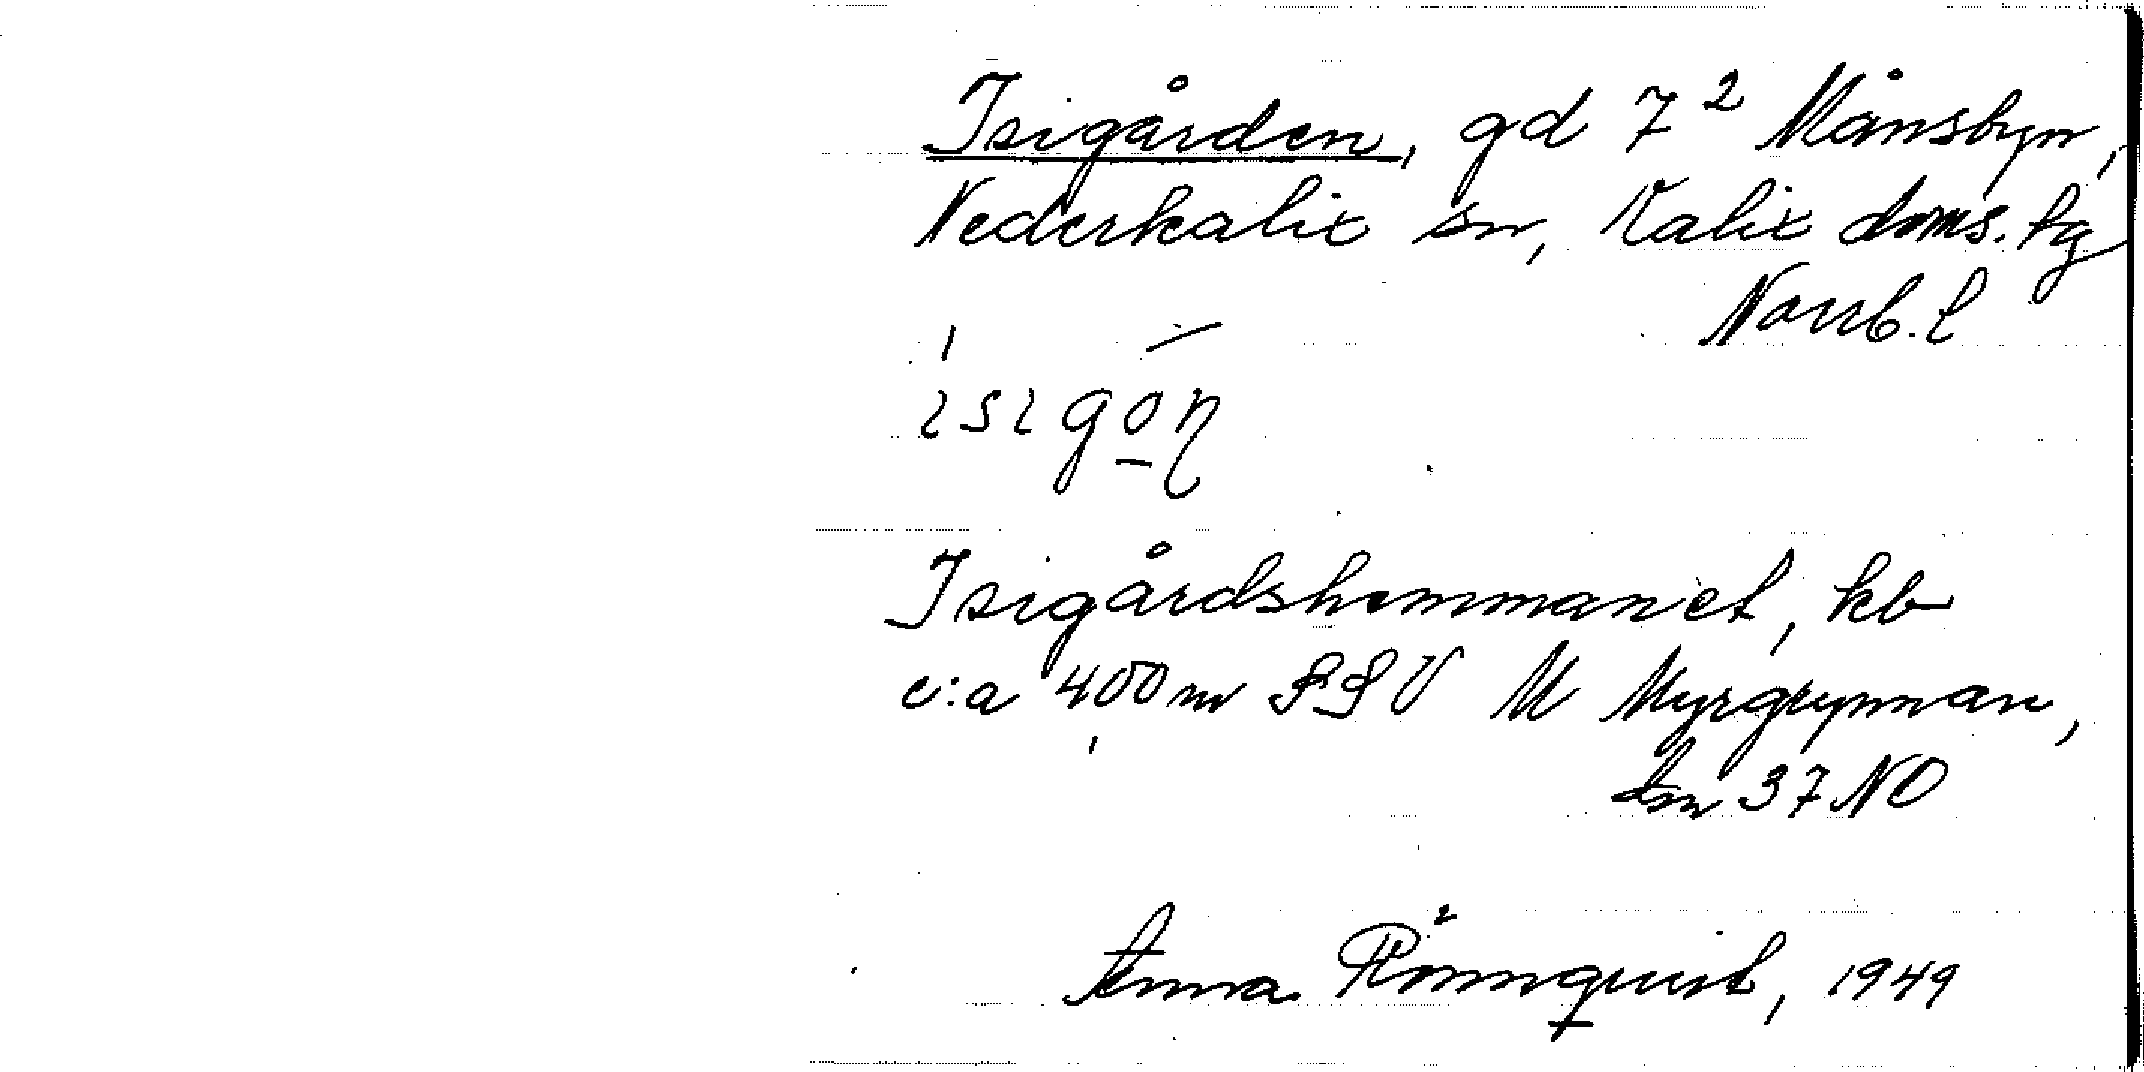 Isigården, gd 7² Månsbyn,
Nederkalix sn, Kalix doms. tg
Norrb. l
ısıgo̲ṇ
Isigårdshemmanet, kb
c:a 400 m SSV M Myrgrynnan,
37 NO
Anna Rönnquist, 1949